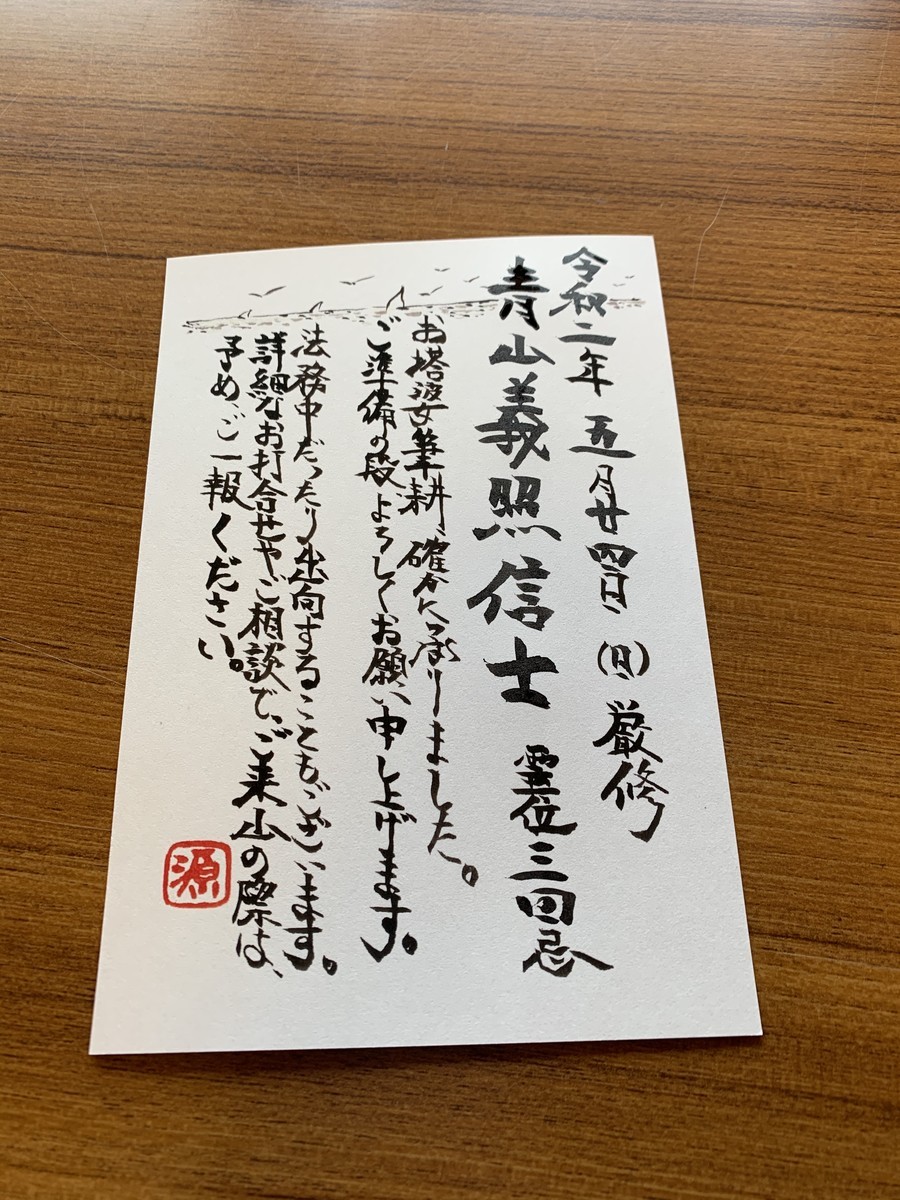 令和二年 五月廿四日 (日) 厳修
青山義照信士 霊位三回忌
お塔婆筆耕、確かに承りました。
ご準備の段よろしくお願い申し上げます。
法務中だったり出向することもございます。
詳細なお打合せやご相談でご来山の際は、
予めご一報ください。
源